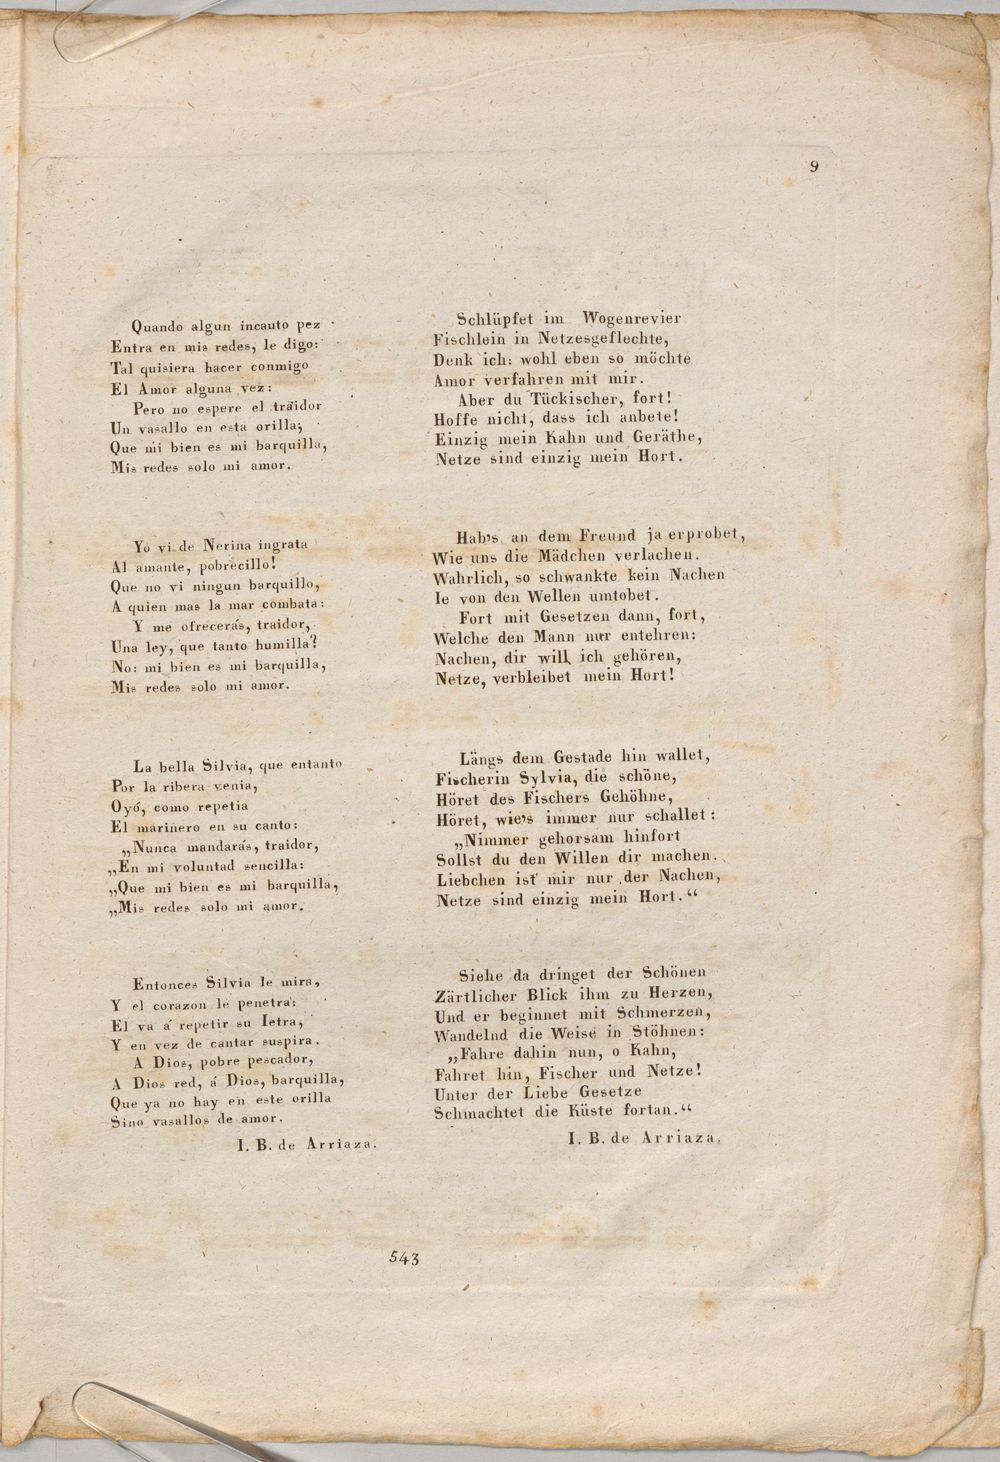 9
Quando algun incauto pez
Entra en mis redes, le digo:
Tal quisiera hacer conmigo
El Amor alguna vez:
Pero no espere el traidor
Un vasallo en esta orilla;
Que mi bien es mi barquilla,
Mis redes solo mi amor.
Yo vi de Nerina ingrata
Al amante, pobrecillo!
Que no vi ningun barquillo,
A quien mas la mar combata:
Y me ofrecerás, traidor,
Una ley, que tanto humilla?
No: mi bien es mi barquilla,
Mis redes solo mi amor.
La bella Silvia, que entanto
Por la ribera venia,
Oyó, como repetia
El marinero en su canto:
„Nunca mandarás, traidor,
„En mi voluntad sencilla:
„Que mi bien es mi barquilla,
„Mis redes solo mi amor.
Entonces Silvia le mira,
Y el corazon le penetra:
El va á repetir su letra,
Y en vez de cantar suspira.
A Dios, pobre pescador,
A Dios red, á Dios, barquilla,
Que ya no hay en este orilla
Sino vasallos de amor.
I. B. de Arriaza.
Schlüpfet im Wogenrevier
Fischlein in Netzesgeflechte,
Denk ich: wohl eben so möchte
Amor verfahren mit mir.
Aber du Tückischer, fort!
Hoffe nicht, dass ich anbete!
Einzig mein Kahn und Geräthe,
Netze sind einzig mein Hort.
Hab's an dem Freund ja erprobet,
Wie uns die Mädchen verlachen.
Wahrlich, so schwankte kein Nachen
Ie von den Wellen umtobet.
Fort mit Gesetzen dann, fort,
Welche den Mann nur entehren:
Nachen, dir will ich gehören,
Netze, verbleibet mein Hort!
Längs dem Gestade hin wallet,
Fischerin Sylvia, die schöne,
Höret des Fischers Gehöhne,
Höret, wie's immer nur schallet:
„Nimmer gehorsam hinfort
Sollst du den Willen dir machen.
Liebchen ist mir nur der Nachen,
Netze sind einzig mein Hort.“
Siehe da dringet der Schönen
Zärtlicher Blick ihm zu Herzen,
Und er beginnet mit Schmerzen,
Wandelnd die Weise in Stöhnen:
„Fahre dahin nun, o Kahn,
Fahret hin, Fischer und Netze!
Unter der Liebe Gesetze
Schmachtet die Küste fortan.“
I. B. de Arriaza.
543